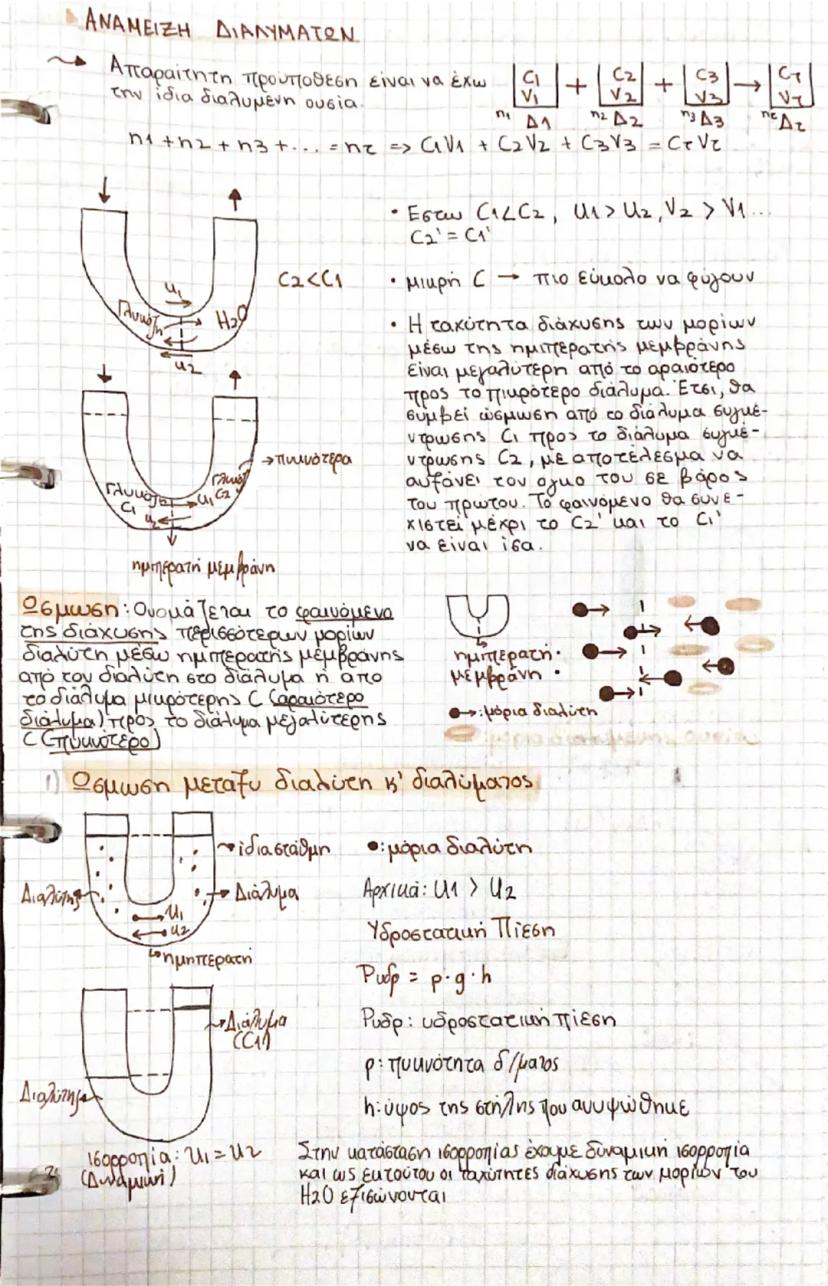 ΑΝΑΜΕΙΞΗ ΔΙΑΛΥΜΑΤΩΝ
Απαραίτητη προϋπόθεση είναι να έχω
την ίδια διαλυμένη ουσία.
C1 V1 + C2 V2 + C3 V3 → Cτ Vτ
n1 Δ1 n2 Δ2 n3 Δ3 nτ Δτ
n1 + n2 + n3 + ... = nτ => C1V1 + C2V2 + C3V3 = CτVτ
• Εστω C1<C2, u1 > u2, V2 > V1...
C2' = C1'
C2<C1
• μικρή C → πιο εύκολο να φύγουν
u1
Γλυκόζη
H2O
u2
• Η ταχύτητα διάχυσης των μορίων
μέσω της ημιπερατής μεμβράνης
είναι μεγαλύτερη από το αραιότερο
προς το πικρότερο διάλυμα. Έτσι, θα
συμβεί ώσμωση από το διάλυμα συγκέ-
ντρωσης C1 προς το διάλυμα συγκέ-
ντρωσης C2, με αποτέλεσμα να
αυξάνει τον ογκο του σε βάρος
του πρωτου. Το φαινόμενο θα συνε-
χιστεί μέχρι το C2' και το C1'
να είναι ίσα.
→πυκνότερα
Γλυκόζη
C1
u1
u2
C2
ημιπερατή μεμβράνη
Ωσμωση: Ονομάζεται το φαινόμενο
της διάχυσης περισσότερων μορίων
διαλύτη μέσω ημιπερατής μεμβράνης
από τον διαλύτη στο διάλυμα ή απο
το διάλυμα μικρότερης C (αραιότερο
διάλυμα) προς το διάλυμα μεγαλύτερης
C (πυκνότερο)
ημιπερατή
μεμβράνη
: μόρια διαλύτη
1) Ωσμωση μεταξυ διαλύτη κ' διαλύματος
ίδια στάθμη
Διαλύτης
Διάλυμα
u1
u2
ημιπερατή
: μόρια διαλύτη
Αρχικά: u1 > u2
Υδροστατική Πίεση
Pυδρ = ρ·g·h
Pυδρ: υδροστατική πίεση
ρ: πυκνότητα δ/ματος
h: ύψος της στήλης που ανυψώθηκε
Διάλυμα
(C1)
Διαλύτης
ισορροπία: u1 = u2
(Δυναμική)
Στην κατάσταση ισορροπίας έχουμε δυναμική ισορροπία
και ως εκ τούτου οι ταχύτητες διάχυσης των μορίων του
H2O εξισώνονται